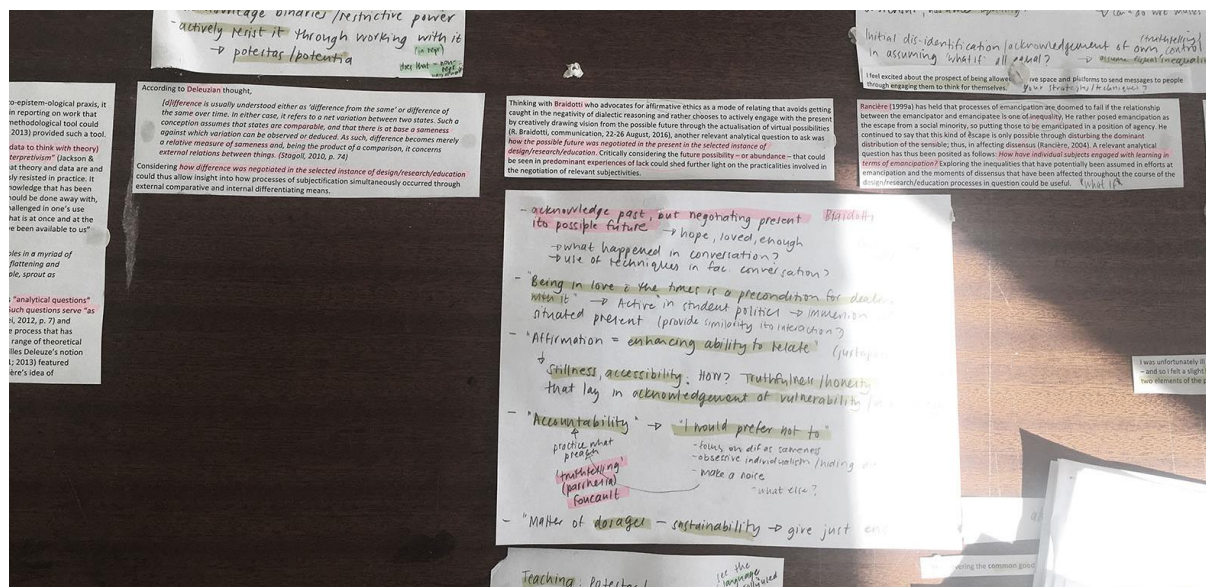 binaries/restrictive power
- actively resist it through working with it
→ potestas/potentia
Initial dis-identification/acknowledgement of own control
in assuming 'what if' all equal?
I feel excited about the prospect of being allowed ive space and platforms to send messages to people
through engaging them to think for themselves.
co-epistem-ological praxis, it
n reporting on work that
methodological tool could
2013) provided such a tool.
data to think with theory)
terpretivism" (Jackson &
at theory and data are and
sly resisted in practice. It
owledge that has been
hould be done away with,
hallenged in one's use
hat is at once and at the
e been available to us"
les in a myriad of
flattening and
ole, sprout as
s "analytical questions"
Such questions serve "as
i, 2012, p. 7) and
e process that has
range of theoretical
lles Deleuze's notion
; 2013) featured
ère's idea of
According to Deleuzian thought,
[d]ifference is usually understood either as 'difference from the same' or difference of
the same over time. In either case, it refers to a net variation between two states. Such a
conception assumes that states are comparable, and that there is at base a sameness
against which variation can be observed or deduced. As such, difference becomes merely
a relative measure of sameness and, being the product of a comparison, it concerns
external relations between things. (Stagoll, 2010, p. 74)
Considering how difference was negotiated in the selected instance of design/research/education
could thus allow insight into how processes of subjectification simultaneously occurred through
external comparative and internal differentiating means.
Thinking with Braidotti who advocates for affirmative ethics as a mode of relating that avoids getting
caught in the negativity of dialectic reasoning and rather chooses to actively engage with the present
by creatively drawing vision from the possible future through the actualisation of virtual possibilities
(R. Braidotti, communication, 22-26 August, 2016), another relevant analytical question to ask was
how the possible future was negotiated in the present in the selected instance of
design/research/education. Critically considering the future possibility – or abundance – that could
be seen in predominant experiences of lack could shed further light on the practicalities involved in
the negotiation of relevant subjectivities.
Rancière (1999a) has held that processes of emancipation are doomed to fail if the relationship
between the emancipator and emancipatee is one of inequality. He rather posed emancipation as
the escape from a social minority, so putting those to be emancipated in a position of agency. He
continued to say that this kind of escape is only possible through disturbing the dominant
distribution of the sensible; thus, in affecting dissensus (Rancière, 2004). A relevant analytical
question has thus been posited as follows: How have individual subjects engaged with learning in
terms of emancipation? Exploring the inequalities that have potentially been assumed in efforts at
emancipation and the moments of dissensus that have been affected throughout the course of the
design/research/education processes in question could be useful. 'What if'
- acknowledge past, but negotiating present Braidotti
its possible future → hope, loved, enough
→ what happened in conversation?
→ use of techniques in fac. conversation?
- "Being in love c the times is a precondition for deal
with it" → Active in student politics → immersion
situated present (provide similarity its interaction?
- "Affirmation = enhancing ability to relate"
stillness, accessibility. How? Truthfulness/honesty
that lay in acknowledgement of vulnerability
- "Accountability" → "I would prefer not to"
practice what
preach
- focus on dif as sameness
- obsessive individualism/hiding
- make a noise
- what else?
'truthtelling'
(parrhesia)
Foucault
- "Matter of dosages – sustainability → give just en
I was unfortunately ill
– and so I felt a slight
two elements of the p
ering the common good
Teaching
see the
language